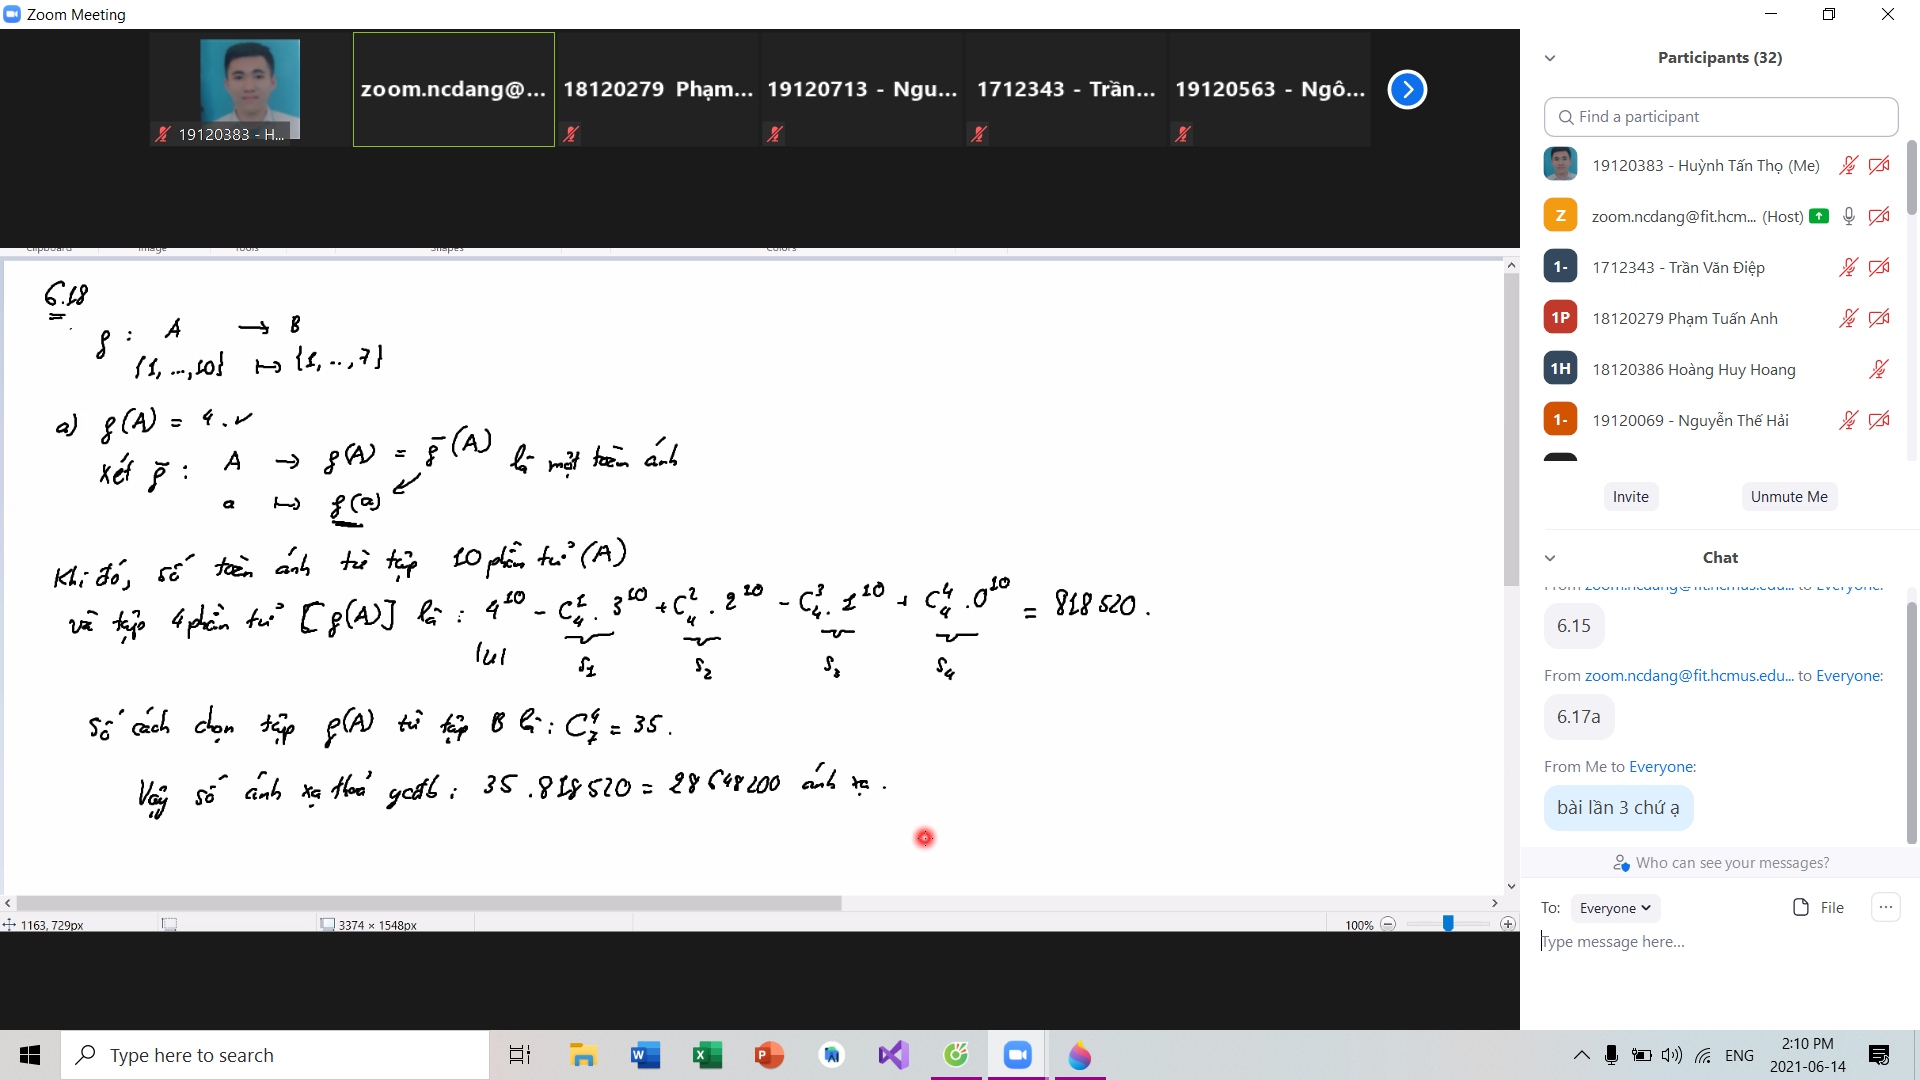 Zoom Meeting
19120383 - H...
zoom.ncdang@...
18120279 Phạm...
19120713 - Ngu...
1712343 - Trần...
19120563 - Ngô...
Clipboard Image Tools Shapes Colors
6.18
f : A → B
{1, ..., 10} ↦ {1, .., 7}
a) f(A) = 4 . ✓
Xét f̄ : A → f(A) = f̄(A) là một toàn ánh
a ↦ f(a)
Khi đó, số toàn ánh từ tập 10 phần tử (A)
và tập 4 phần tử [f(A)] là : 4¹⁰ - C₄¹ . 3¹⁰ + C₄² . 2¹⁰ - C₄³ . 1¹⁰ + C₄⁴ . 0¹⁰ = 818520 .
|U| S₁ S₂ S₃ S₄
Số cách chọn tập f(A) từ tập B là : C₇⁴ = 35 .
Vậy số ánh xạ thoả ycđb : 35 . 818520 = 28648200 ánh xạ .
1163, 729px
3374 × 1548px
100%
Participants (32)
Find a participant
19120383 - Huỳnh Tấn Thọ (Me)
Z zoom.ncdang@fit.hcm... (Host)
1- 1712343 - Trần Văn Điệp
1P 18120279 Phạm Tuấn Anh
1H 18120386 Hoàng Huy Hoang
1- 19120069 - Nguyễn Thế Hải
Invite Unmute Me
Chat
From zoom.ncdang@fit.hcmus.edu... to Everyone:
6.15
From zoom.ncdang@fit.hcmus.edu... to Everyone:
6.17a
From Me to Everyone:
bài lần 3 chứ ạ
Who can see your messages?
To: Everyone File
Type message here...
Type here to search
ENG
2:10 PM
2021-06-14